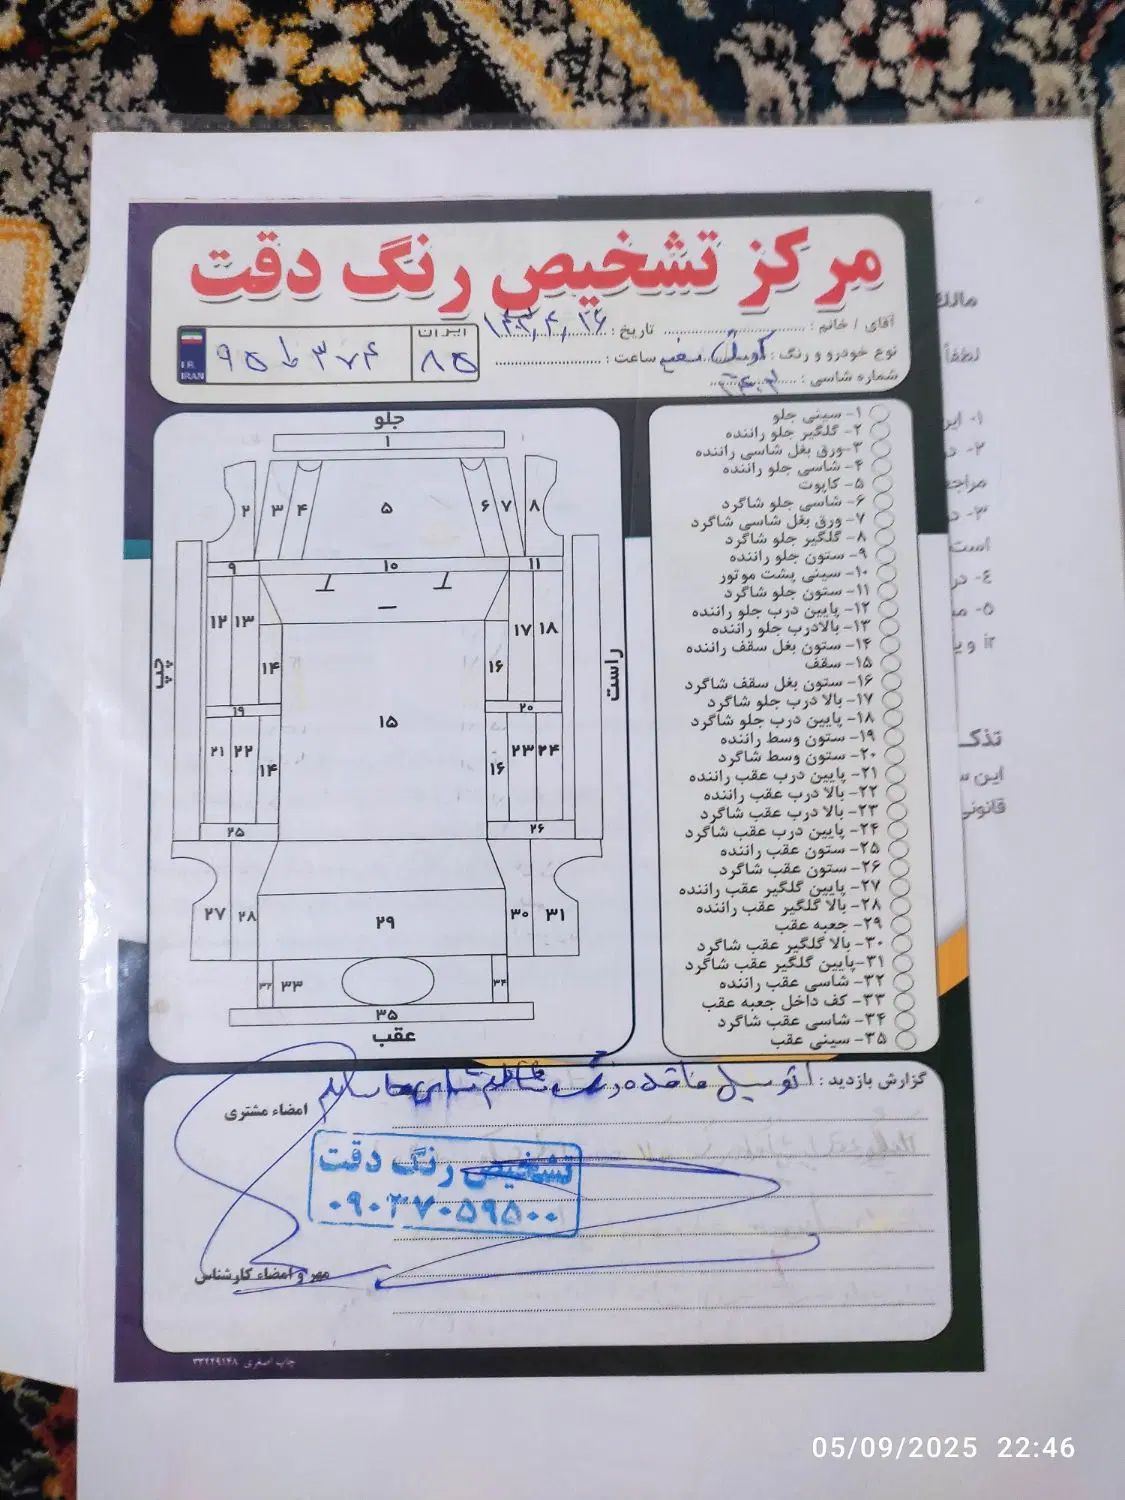 مرکز تشخیص رنگ دقت
آقای / خانم : تاریخ :
نوع خودرو و رنگ : ساعت :
شماره شاسی :
ایران
۸۵
۹۵ ط ۳۷۴
I.R.
IRAN
جلو
۱
۲ ۳ ۴ ۵ ۶ ۷ ۸
۹ ۱۰ ۱۱
۱۲ ۱۳ ۱۷ ۱۸
۱۴ ۱۶
چپ
راست
۱۹ ۱۵ ۲۰
۲۱ ۲۲ ۱۴ ۱۶ ۲۳ ۲۴
۲۵ ۲۶
۲۷ ۲۸ ۲۹ ۳۰ ۳۱
۳۲ ۳۳ ۳۴
۳۵
عقب
۱- سینی جلو
۲- گلگیر جلو راننده
۳-ورق بغل شاسی راننده
۴- شاسی جلو راننده
۵- کاپوت
۶- شاسی جلو شاگرد
۷- ورق بغل شاسی شاگرد
۸- گلگیر جلو شاگرد
۹- ستون جلو راننده
۱۰- سینی پشت موتور
۱۱- ستون جلو شاگرد
۱۲- پایین درب جلو راننده
۱۳- بالادرب جلو راننده
۱۴- ستون بغل سقف راننده
۱۵- سقف
۱۶- ستون بغل سقف شاگرد
۱۷- بالا درب جلو شاگرد
۱۸- پایین درب جلو شاگرد
۱۹- ستون وسط راننده
۲۰- ستون وسط شاگرد
۲۱- پایین درب عقب راننده
۲۲- بالا درب عقب راننده
۲۳- بالا درب عقب شاگرد
۲۴- پایین درب عقب شاگرد
۲۵- ستون عقب راننده
۲۶- ستون عقب شاگرد
۲۷- پایین گلگیر عقب راننده
۲۸- بالا گلگیر عقب راننده
۲۹- جعبه عقب
۳۰- بالا گلگیر عقب شاگرد
۳۱-پایین گلگیر عقب شاگرد
۳۲- شاسی عقب راننده
۳۳- کف داخل جعبه عقب
۳۴- شاسی عقب شاگرد
۳۵- سینی عقب
گزارش بازدید : اتومبیل فاقد رنگ
امضاء مشتری
تشخیص رنگ دقت
۰۹۰۳۷۰۵۹۵۰۰
مهر و امضاء کارشناس
چاپ اصغری ۳۳۲۲۹۱۴۸
05/09/2025 22:46